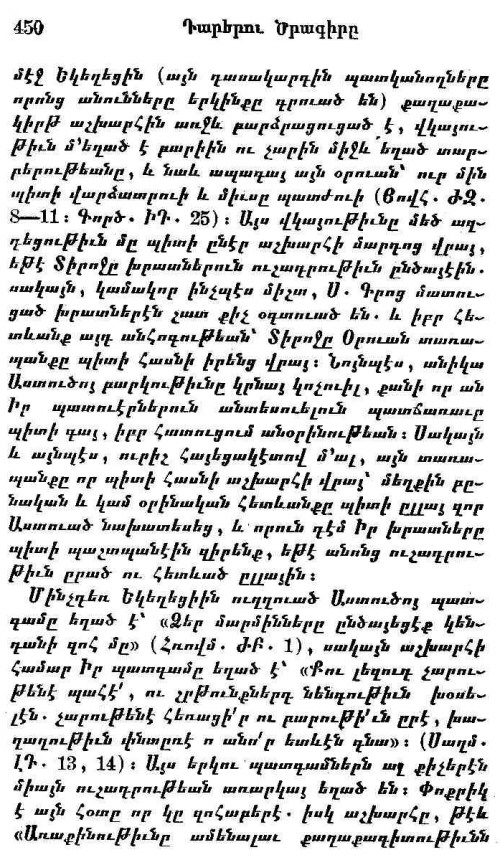 450 Դարերու Ծրագիրը
մէջ Եկեղեցին (այն դասակարգին պատկանողները
որոնց անունները երկինքը գրուած են) քաղաքա-
կիրթ աշխարհին առջև բարձրացուցած է, վկայու-
թիւն մ'եղած է բարիին ու չարին միջև եղած տար-
բերութեանը, և նաև ապագայ այն օրուան՝ ուր մին
պիտի վարձատրուի և միւսը պատժուի (Յովհ. ԺԶ.
8—11։ Գործ. ԻԴ. 25)։ Այս վկայութիւնը մեծ ազ-
դեցութիւն մը պիտի ընէր աշխարհի մարդոց վրայ,
եթէ Տիրոջը խրատներուն ուչադրութիւն ընծայէին.
սակայն, կամակոր ինչպէս միշտ, Ս. Գրոց մատու-
ցած խրատներէն շատ քիչ օգտուած են. և իբր հե-
տևանք այդ անհոգութեան՝ Տիրոջը Օրուան տառա-
պանքը պիտի հասնի իրենց վրայ։ Նոյնպէս, անիկա
Աստուծոյ բարկութիւնը կրնայ կոչուիլ, քանի որ ան
Իր պատուէրներուն անտեսուելուն պատճառաւը
պիտի գայ, իբր հատուցում անօրինութեան։ Սակայն
և այնպէս, ուրիշ հայեցակէտով մ'ալ, այն տառա-
պանքը որ պիտի հասնի աշխարհի վրայ՝ մեղքին բը-
նական և կամ օրինական հետևանքը պիտի ըլլայ զոր
Աստուած նախատեսեց, և որուն դէմ Իր խրատները
պիտի պաշտպանէին զիրենք, եթէ անոնց ուչադրու-
թիւն ըրած ու հետևած ըլլային։
Մինչդեռ Եկեղեցիին ուղղուած Աստուծոյ պատ-
գամը եղած է՝ «Ձեր մարմինները ընծայեցէք կեն-
դանի զոհ մը» (Հռովմ. ԺԲ. 1), սակայն աշխարհի
համար Իր պատգամը եղած է՝ «Քու լեզուդ չարու-
թենէ պահէ՛, ու շրթունքներդ նենգութիւն խօսե-
լէն. չարութենէ հեռացի՛ր ու բարութի՛ւն ըրէ, խա-
ղաղութիւն փնտռէ ո անո՛ր ետևէն գնա»։ (Սաղմ.
ԼԴ. 13, 14)։ Այս երկու պատգամներն ալ քիչերէն
միայն ուչադրութեան առարկայ եղած են։ Փոքրիկ
է այն հօտը որ կը զոհաբերէ. իսկ աշխարհը, թէև
«Առաքինութիւնը ամենալաւ քաղաքագիտութիւնն